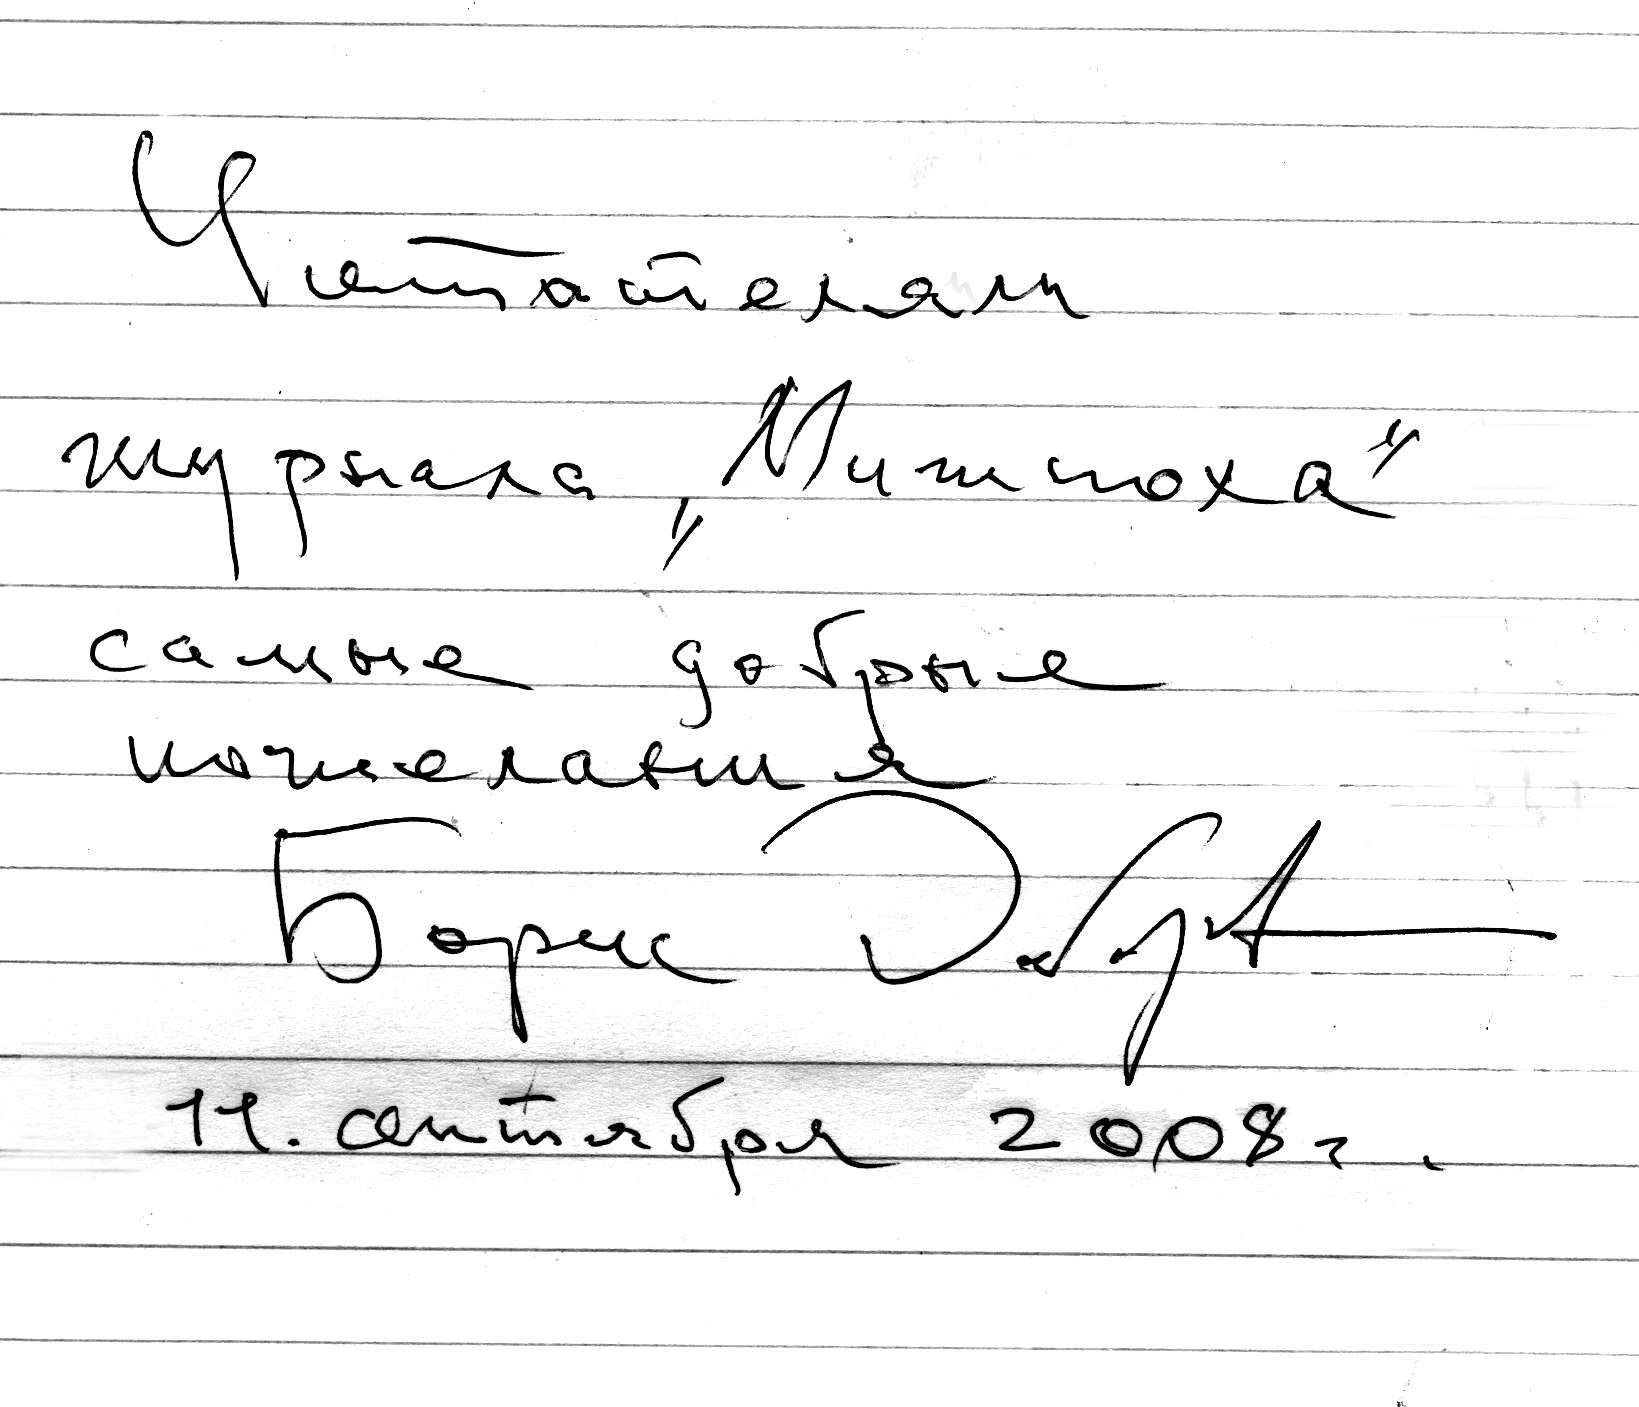 Читателям
журнала „Мишпоха”
самые добрые
пожелания
Борис
11. сентября 2008 г.